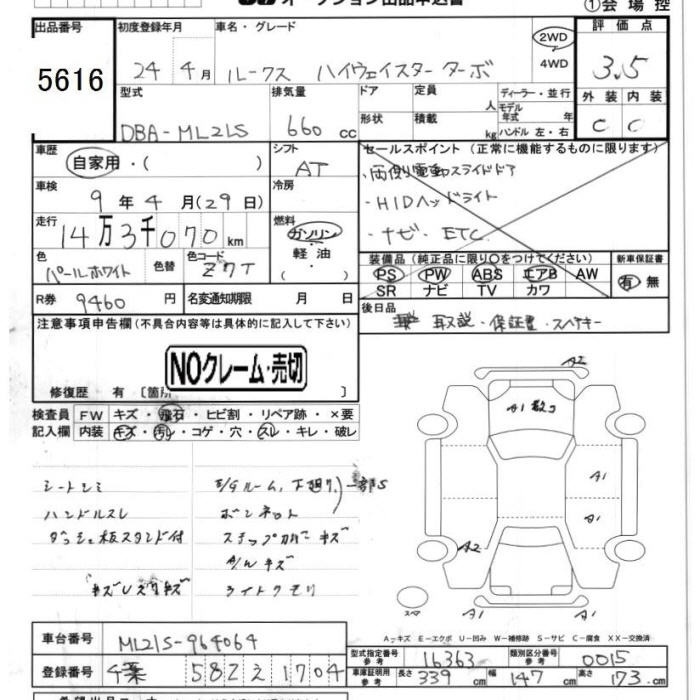 オークション出品申込書
①会場控
出品番号
5616
初度登録年月
24年4月
車名・グレード
ルークス ハイウェイスター ターボ
2WD
4WD
評価点
3.5
型式
DBA-ML21S
排気量
660 cc
ドア
形状
定員
人
積載
kg
ディーラー・並行
モデル年式 年
ハンドル 左・右
外装 内装
C C
車歴
自家用・( )
シフト
AT
セールスポイント(正常に機能するものに限ります)
・両側電動スライドドア
・HIDヘッドライト
・ナビ・ETC
車検
9年4月(29日)
冷房
走行
14万3千070km
燃料
ガソリン
軽油
( )
色
パールホワイト
色替
色コード
Z7T
装備品(純正品に限り○をつけてください)
PS PW ABS エアB AW
SR ナビ TV カワ
新車保証書
有 無
R券
9460円
名変通知期限 月 日
後日品
取説・保証書・スペアキー
注意事項申告欄(不具合内容等は具体的に記入して下さい)
NOクレーム・売切
修復歴 有〔箇所 〕
検査員記入欄
FW キズ・飛石・ヒビ割・リペア跡・×要
内装 キズ・汚れ・コゲ・穴・スレ・キレ・破レ
シートシミ
ハンドルスレ
ダッシュ板スタンド付
E/Gルーム、下廻り 一部S
ボンネット
ステップカバーキズ
A/Wキズ
ライトクモリ
A2
A1
A1
A1
A2
A1
A1
スペア
A…キズ E…エクボ U…凹み W…補修跡 S…サビ C…腐食 XX…交換済
車台番号
ML21S-964064
登録番号
千葉 582 え 1704
型式指定番号 参考
16363
類別区分番号 参考
0015
車庫証明用 参考
長さ 339cm
幅 147cm
高さ 173.cm